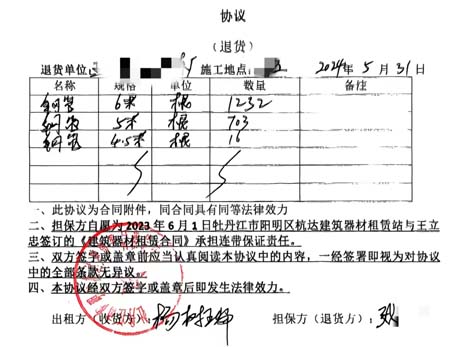 协议
（退货）
退货单位： 施工地点： 2024年5月31日
名称 规格 单位 数量 备注
钢管 6米 根 1232
钢管 5米 根 703
钢管 4.5米 根 16
一、此协议为合同附件，同合同具有同等法律效力
二、担保方自愿为2023年6月1日牡丹江市阳明区杭达建筑器材租赁站与王立
志签订的《建筑器材租赁合同》承担连带保证责任。
三、双方签字或盖章前应当认真阅读本协议中的内容，一经签署即视为对协议
中的全部条款无异议。
四、本协议经双方签字或盖章后即发生法律效力。
出租方（收货方）： 担保方（退货方）：